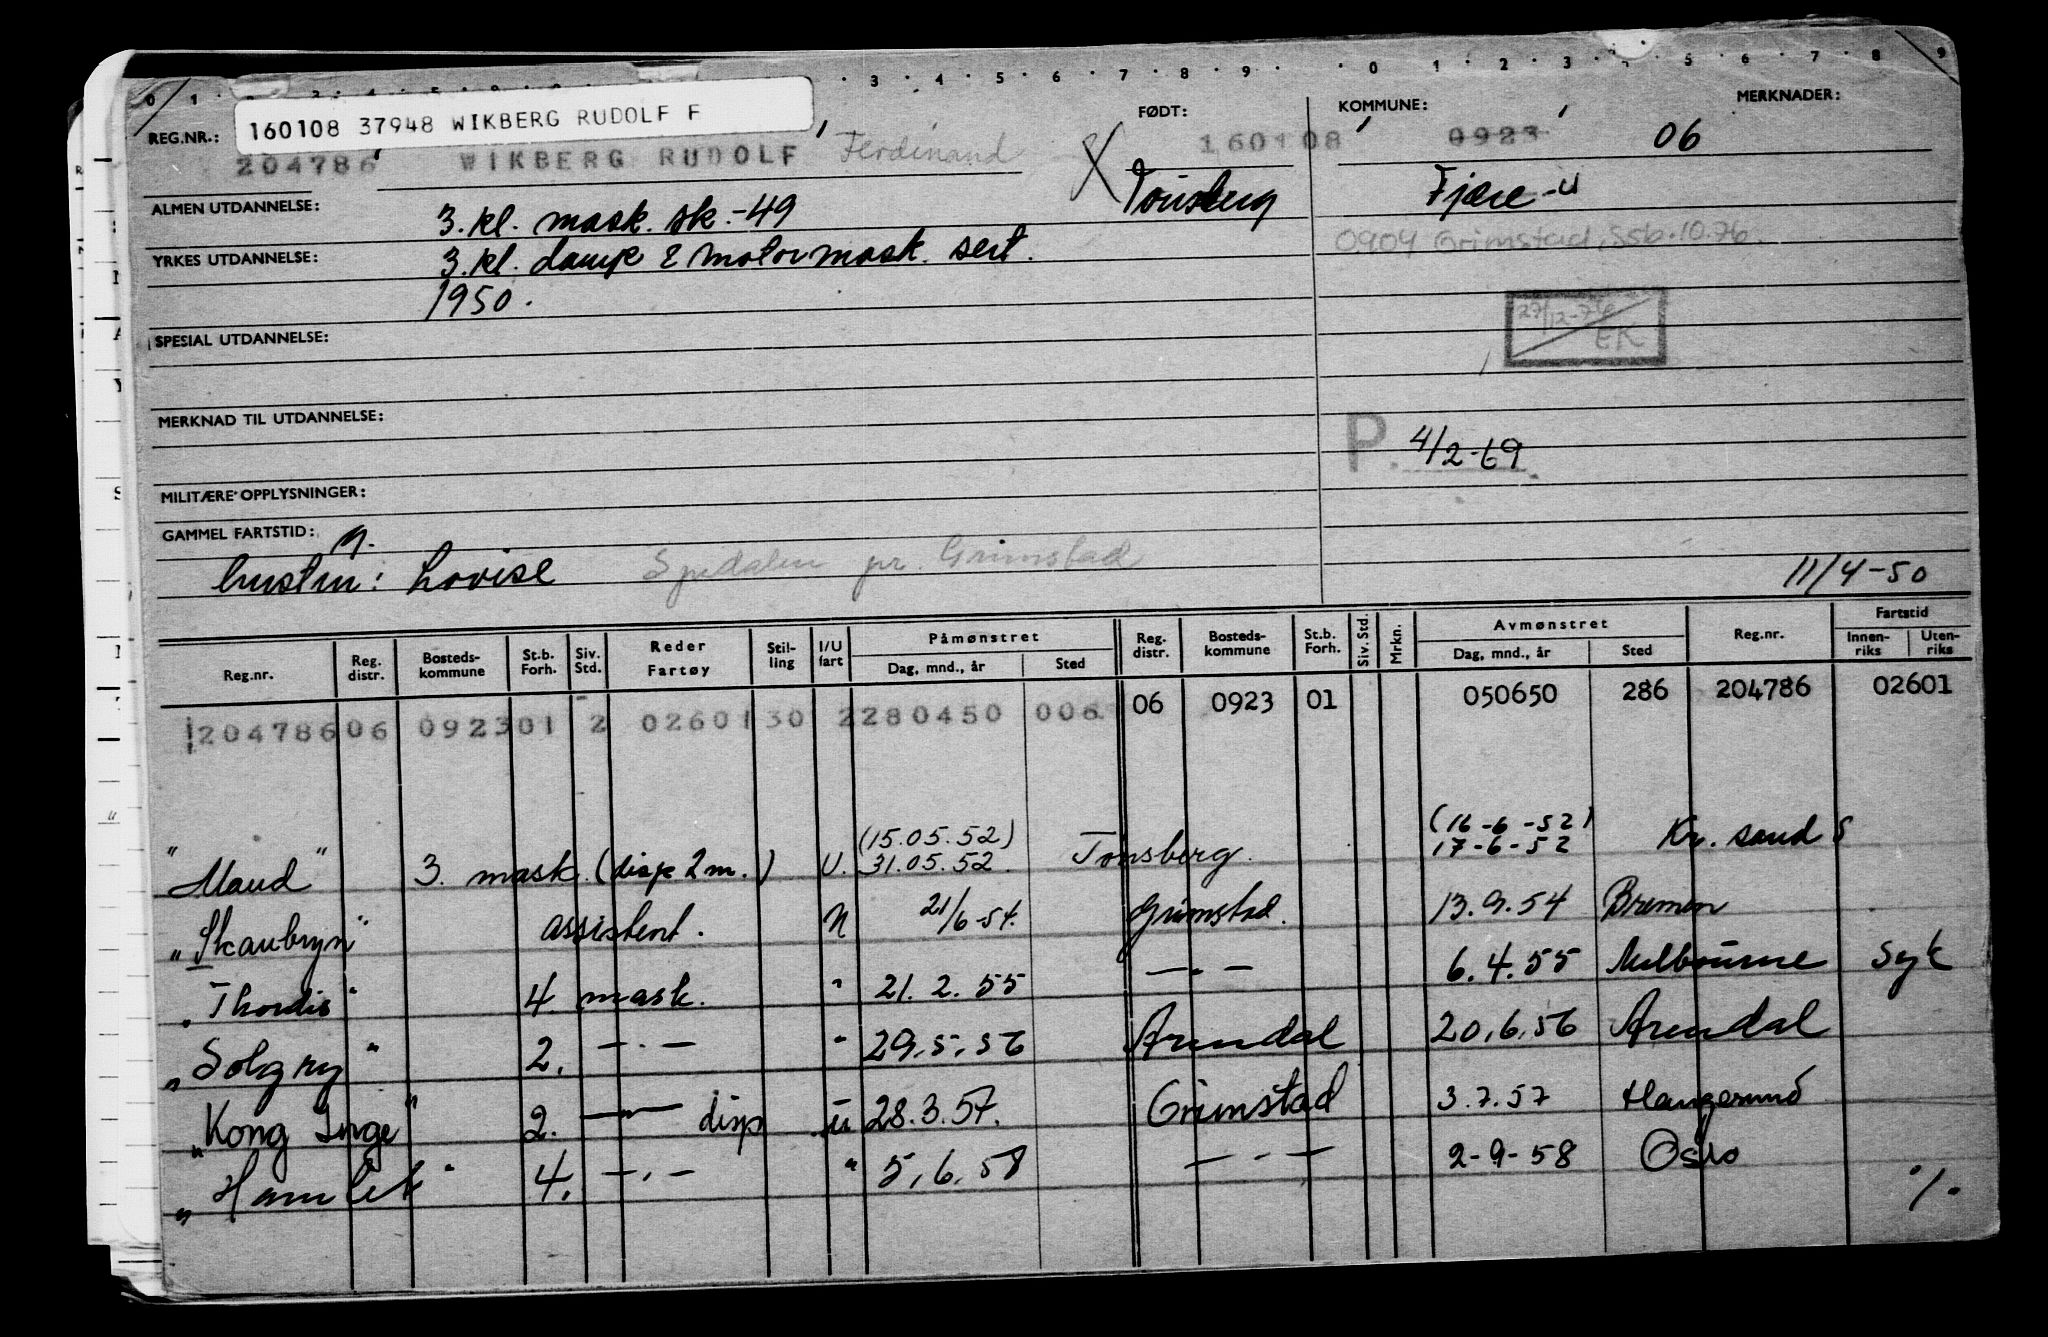 160108 37948 WIKBERG RUDOLF F
REG.NR.: FØDT: KOMMUNE: MERKNADER:
204786 WIKBERG RUDOLF Ferdinand 160108 0923 06
ALMEN UTDANNELSE: 3. kl. mask. sk. -49 Tønsberg Fjære -U
YRKES UTDANNELSE: 3. kl. damp & motormask. sert. 0904 Grimstad, Ssb. 10.76.
1950.
27/12-76 EK
SPESIAL UTDANNELSE:
MERKNAD TIL UTDANNELSE:
P. 4/2-69
MILITÆRE OPPLYSNINGER:
GAMMEL FARTSTID:
hustru: Lovise Spedalen pr. Grimstad 11/4-50
Reg.nr. Reg. distr. Bosteds-kommune St.b. Forh. Siv. Std. Reder Fartøy Stil-ling I/U fart Påmønstret Dag, mnd., år Sted Reg. distr. Bosteds-kommune St.b. Forh. Siv. Std. Mrkn. Avmønstret Dag, mnd., år Sted Reg.nr. Fartstid Innen-riks Uten-riks
204786 06 0923 01 2 02601 30 2 280450 006 06 0923 01 050650 286 204786 02601
(15.05.52) (16-6-52)
"Maud" 3. mask. (disp 2 m.) U. 31.05.52. Tønsberg. 17-6-52 Kr. sand S
"Skaubryn" assistent. U 21/6-54. Grimstad. 13.9.54 Bremen
"Thordis" 4. mask. " 21.2.55 —.— 6.4.55 Melbourne Syk
"Solgry" 2. —.— " 29.5.56 Arendal 20.6.56 Arendal
"Kong Inge" 2. —"— disp u 28.3.57. Grimstad 3.7.57 Haugesund
"Hamlet" 4. —.— " 5.6.58 —.— 2-9-58 Oslo
./.